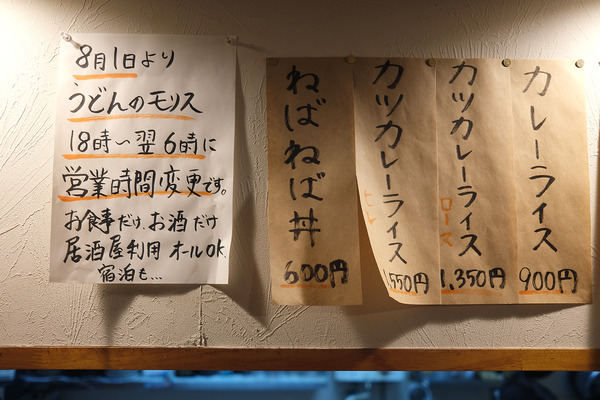 8月1日より
うどんのモリス
18時〜翌6時に
営業時間変更です。
お食事だけ、お酒だけ
居酒屋利用 オールOK
宿泊も...
カレーライス
900円
カツカレーライス
ロース
1,350円
カツカレーライス
ヒレ
1,550円
ねばねば丼
600円